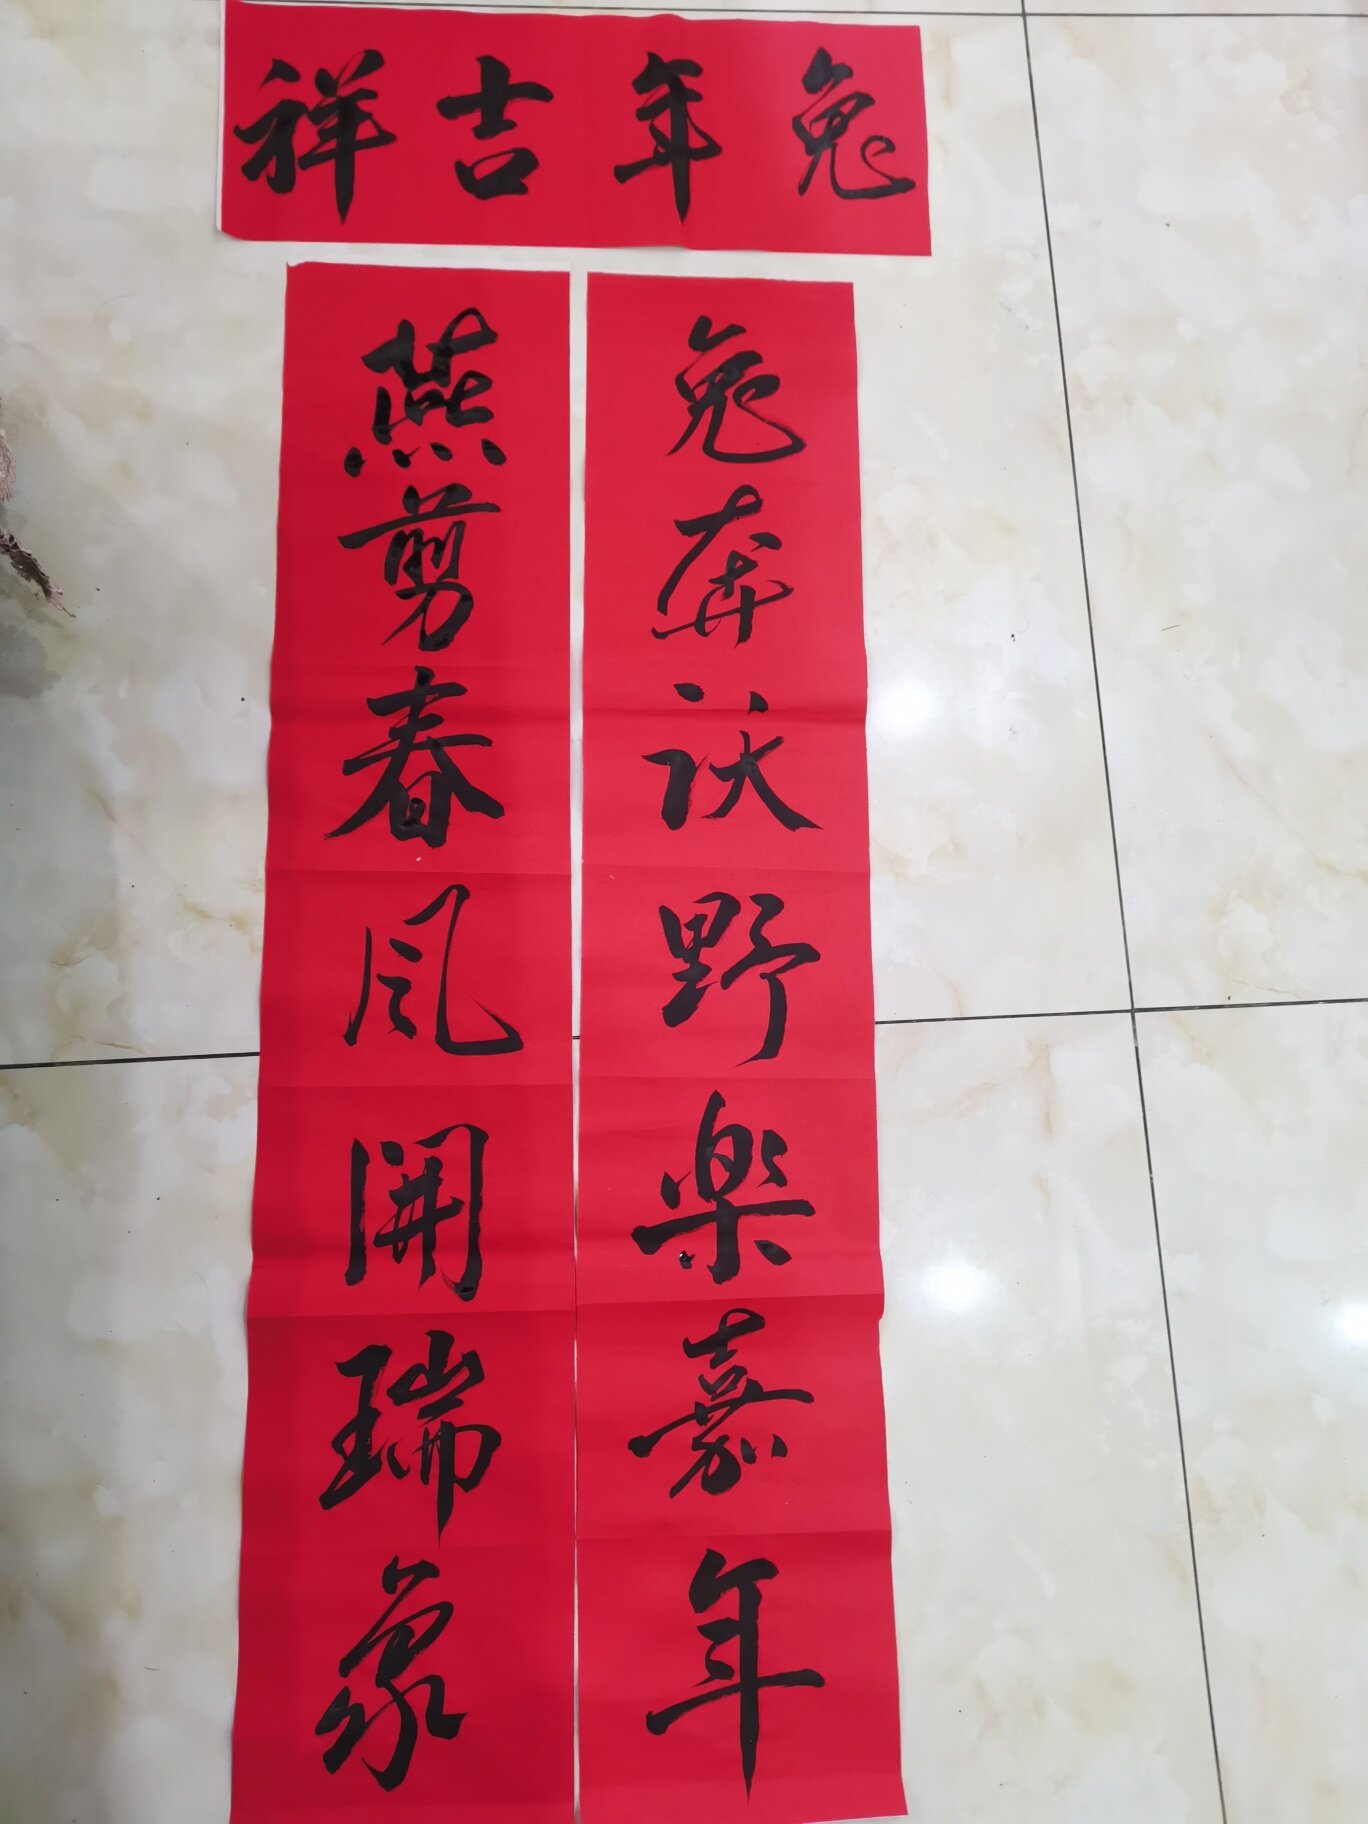 兔年吉祥
兔奔沃野楽嘉年
燕剪春風開瑞象